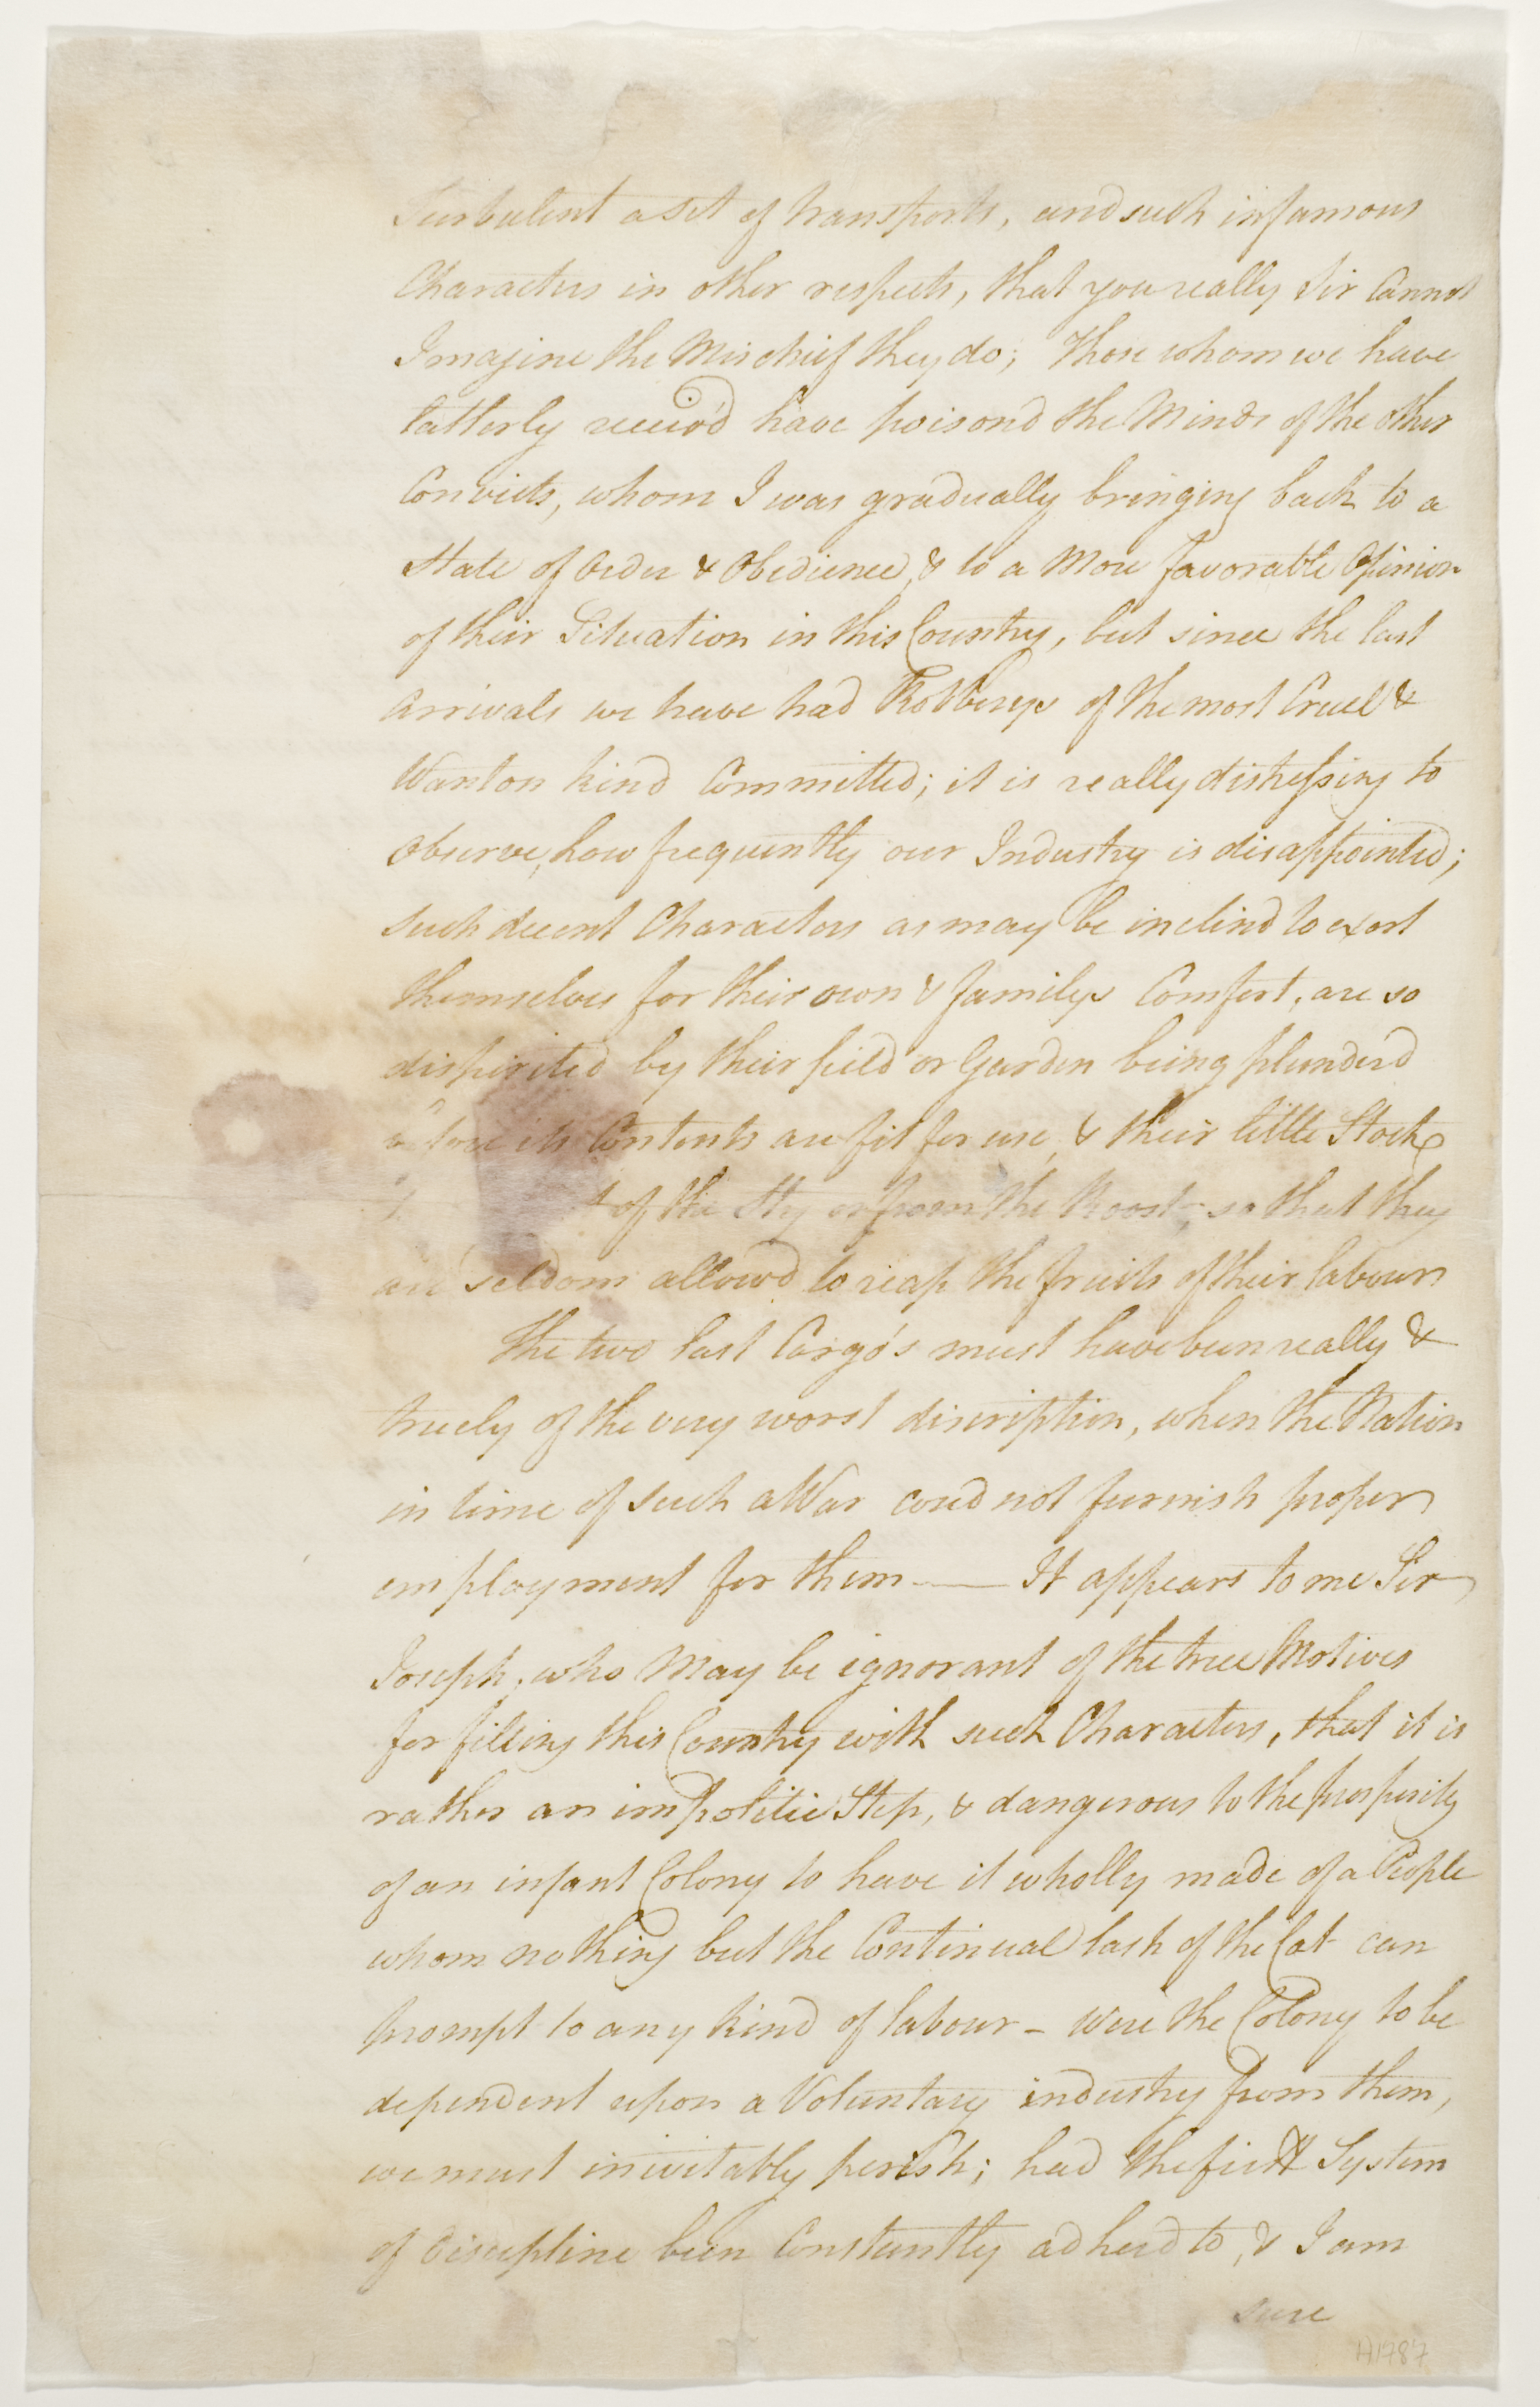 Turbulent a set of transports, and such infamous
Characters in other respects, that you really Sir Cannot
Imagine the Mischief they do; Those whom we have
latterly receiv'd have poisond the Minds of the other
Convicts, whom I was gradually bringing back to a
State of Order & Obedience, & to a More favorable Opinion
of their Situation in this Country, but since the last
arrivals we have had Robberys of the most Cruel &
Wanton kind Committed; it is really distressing to
Observe, how frequently our Industry is disappointed;
such decent Characters as may be inclind to exert
themselves for their own & familys Comfort, are so
dispirited by their field or Garden being plunderd
before its Contents are fit for use, & their little Stock
of the Sty or from the Roost; so that they
are seldom allowd to reap the fruits of their labour
The two last Cargo's must have been really &
truely of the very worst discription, when the Nation
in time of such a War coud not furnish proper
employment for them — It appears to me Sir
Joseph, who May be ignorant of the true Motives
for filling this Country with such Characters, that it is
rather an impolitic Step, & dangerous to the prosperity
of an infant Colony to have it wholly made of a People
whom nothing but the Continual lash of the Cat can
prompt to any kind of labour - were the Colony to be
dependent upon a Voluntary industry from them,
we must inevitably perish; had the first System
of Discipline been Constantly adherd to, & I am
sure
H1787